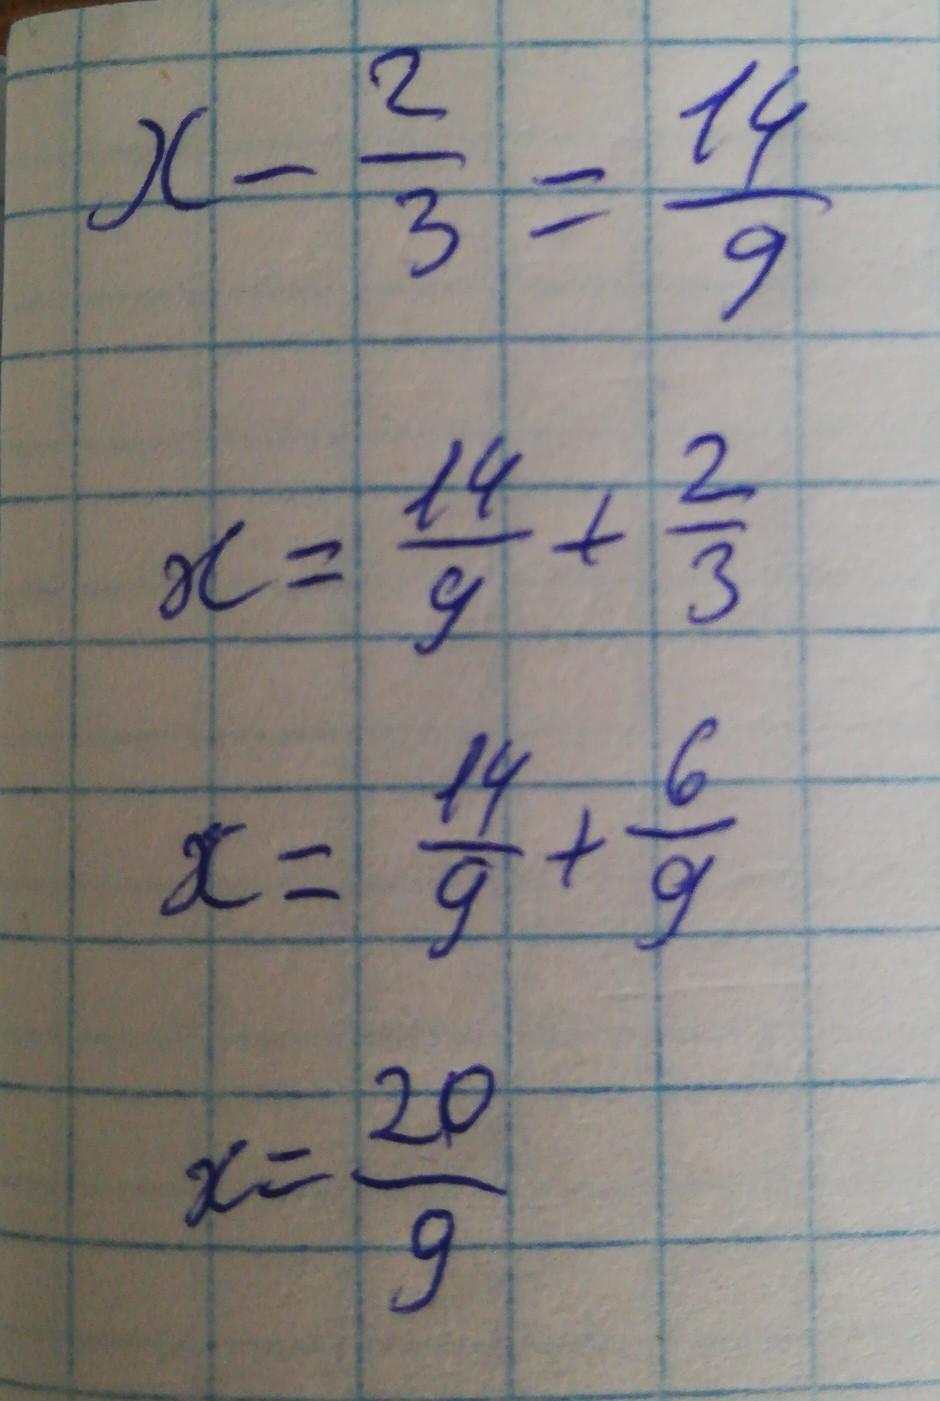 x - 2/3 = 14/9
x = 14/9 + 2/3
x = 14/9 + 6/9
x = 20/9